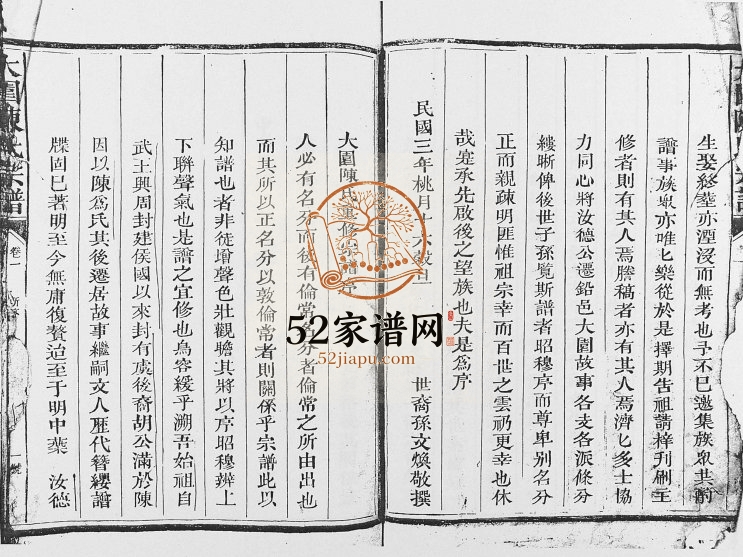 生娶終塟亦湮沒而無考也予不巳邀集族眾共酌
譜事族眾亦唯匕樂從於是擇期告祖請梓刋刷主
修者則有其人焉謄稿者亦有其人焉濟匕多士協
力同心將汝德公遷鉛邑大園故事各支各派條分
縷晰俾後世子孫覽斯譜者昭穆序而尊卑别名分
正而親疎明匪惟祖宗幸而百世之雲礽更幸也休
哉寔承先啟後之望族也夫是為序
民國三年桃月 六穀旦
世裔孫文煥敬撰
大園陳氏重修宗譜
人必有名分而後有倫常名分者倫常之所由出也
而其所以正名分以敦倫常者則關係乎宗譜此以
知譜也者非徒增聲色壯觀瞻其將以序昭穆辨上
下聯聲氣也是譜之宜修也烏容緩乎溯吾始祖自
武王興周封建侯國以來封有虞後裔胡公滿於陳
因以陳為氏其後遷居故事繼嗣文人歷代簪纓譜
牒固巳著明至今無庸復贅迨至于明中葉 汝德
大園陳氏宗譜
卷一
52家谱网
52jiapu.com